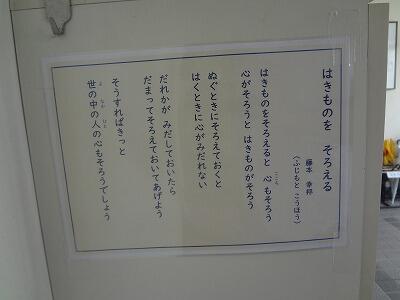 はきものを　そろえる
藤本　幸邦
(ふじもと こうほう)
はきものをそろえると　心　もそろう
こころ
心がそろうと　はきものがそろう
ぬぐときにそろえておくと
はくときに心がみだれない
だれかが　みだしておいたら
だまってそろえておいてあげよう
そうすればきっと
世の中の人の心もそろうでしょう
よ　なか　ひと